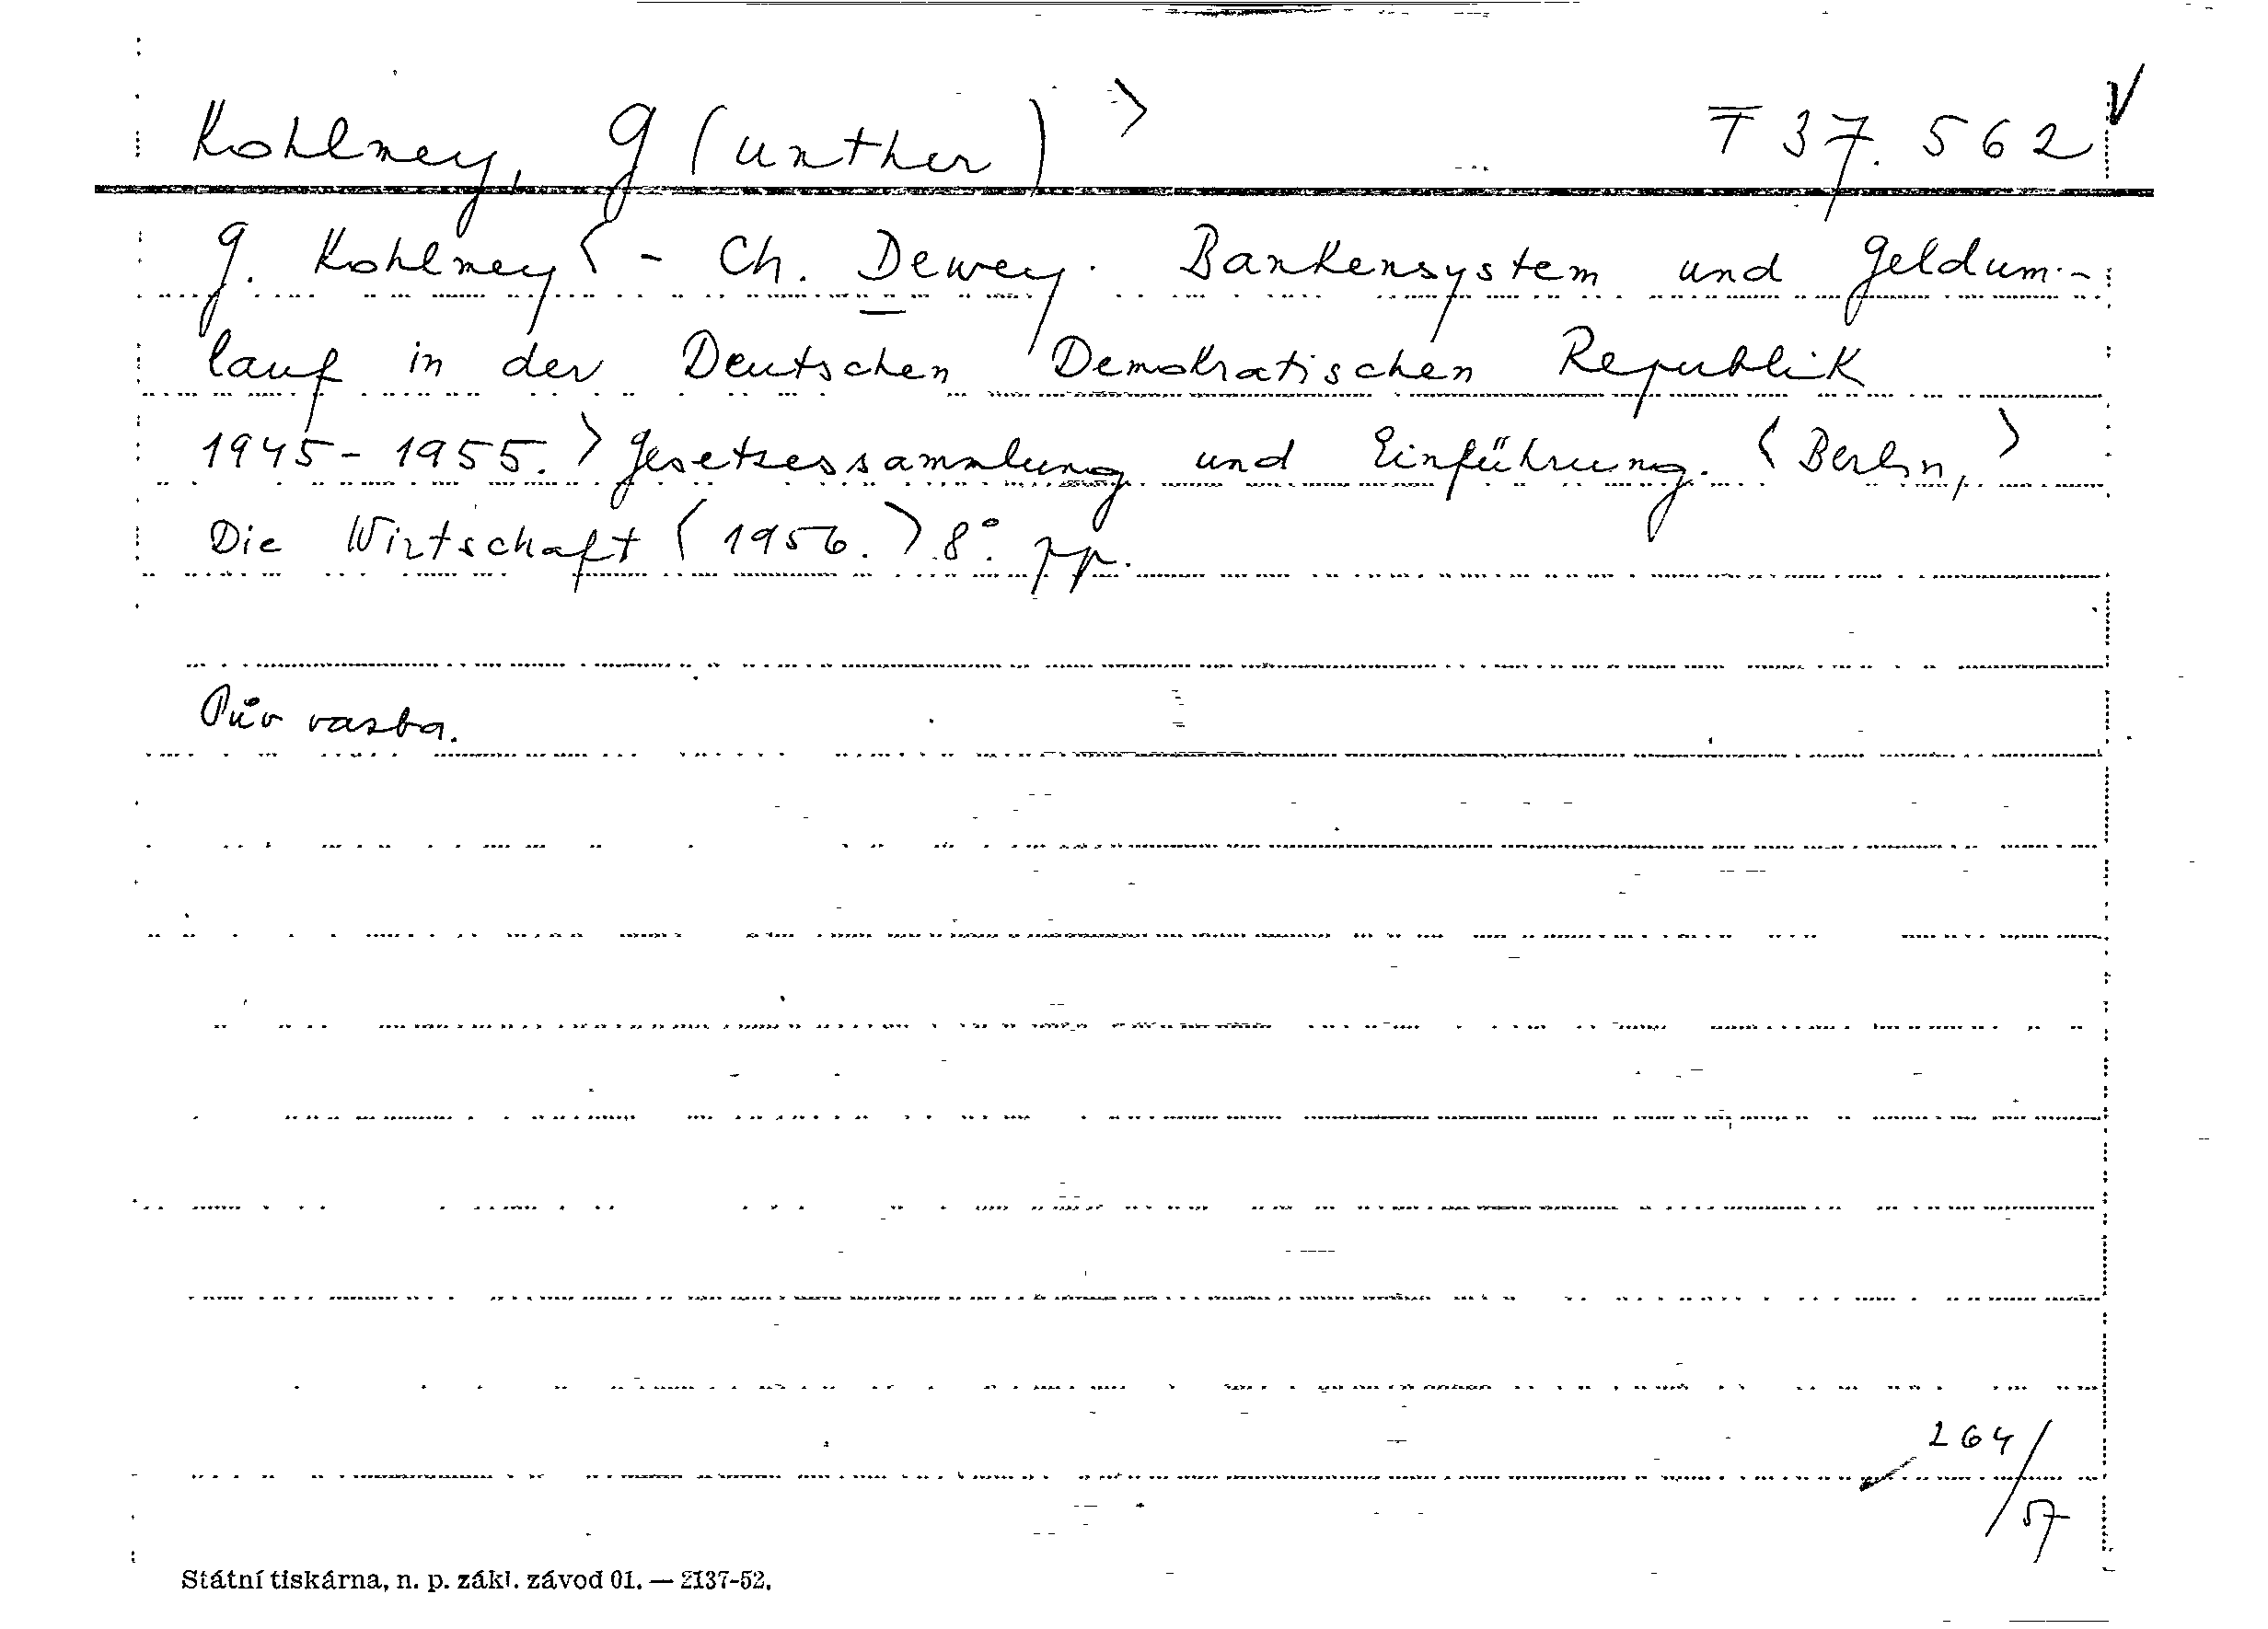 Kohlmey, G(unther) > T 37.562 V
G. Kohlmey < - Ch. Dewey. Bankensystem und Geldum-
lauf in der Deutschen Demokratischen Republik
1945-1955. > Gesetzessammlung und Einführung. < Berlin, >
Die Wirtschaft < 1956. > 8°. pp.
Pův vazba.
264/57
Státní tiskárna, n. p. zákl. závod 01. — 2137-52.